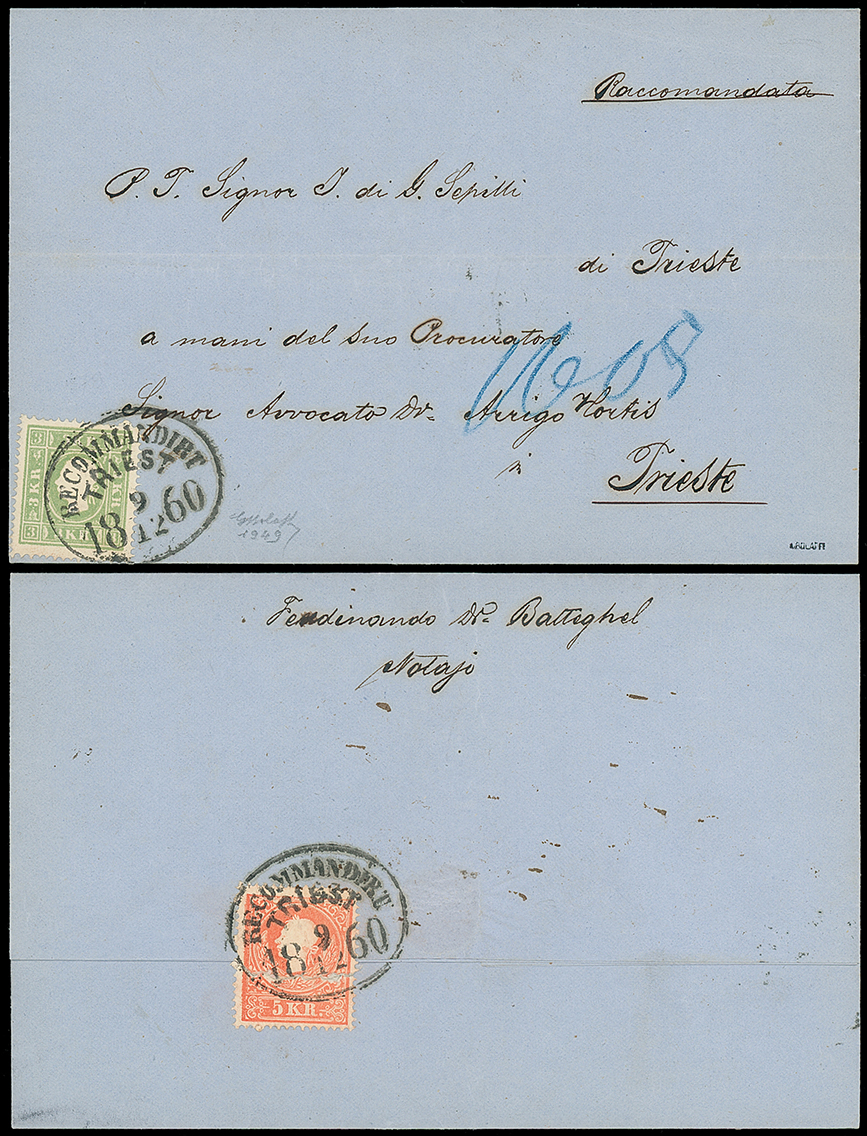 Raccomandata
P. T. Signor I. di G. Sepilli
di Trieste
a mani del suo Procuratore
1608
Signor Avvocato Dr. Arrigo Hortis
in
Trieste
3 KR.
RECOMMANDIRT
TRIEST
9
18 12 60
1949
Ferdinando Dr. Batteghel
Notajo
RECOMMANDIRT
TRIEST
9
18 12 60
5 KR.